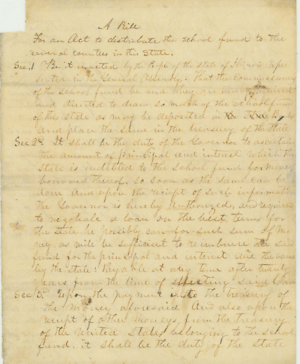 A Bill
For an Act to distribute the school fund to the
several counties in the State.
Sec 1 Be it enacted by the people of the state of Illinois repre
sented in the General Assembly, that the Commissioners
of the School fund be and they are
and directed to draw so much of the school fun
of the state as may be deposited in Bank,
and place the same in the treasury of the State
Sec 2d It shall be the duty of the Governor to ascertain
the amount of principal and interest which the
state is indebted to the school fund for money
borrowed thereof, so soon as the same can be
done. And upon the receipt of such information
the Governor is hereby authorized, and required
to negotiate a loan on the best terms for
the state he possibly can for such sum of mo
ney as will be sufficient to reimburse the said
fund for the principal and interest due the same
by the state: Payable at any time after twenty
years from the time of said loan
Sec 3d Upon the payment into the treasury of
the money aforesaid, and also upon the
receipt of other monies from the treasury
of the United States belonging to the school
fund, it shall be the duty of the state